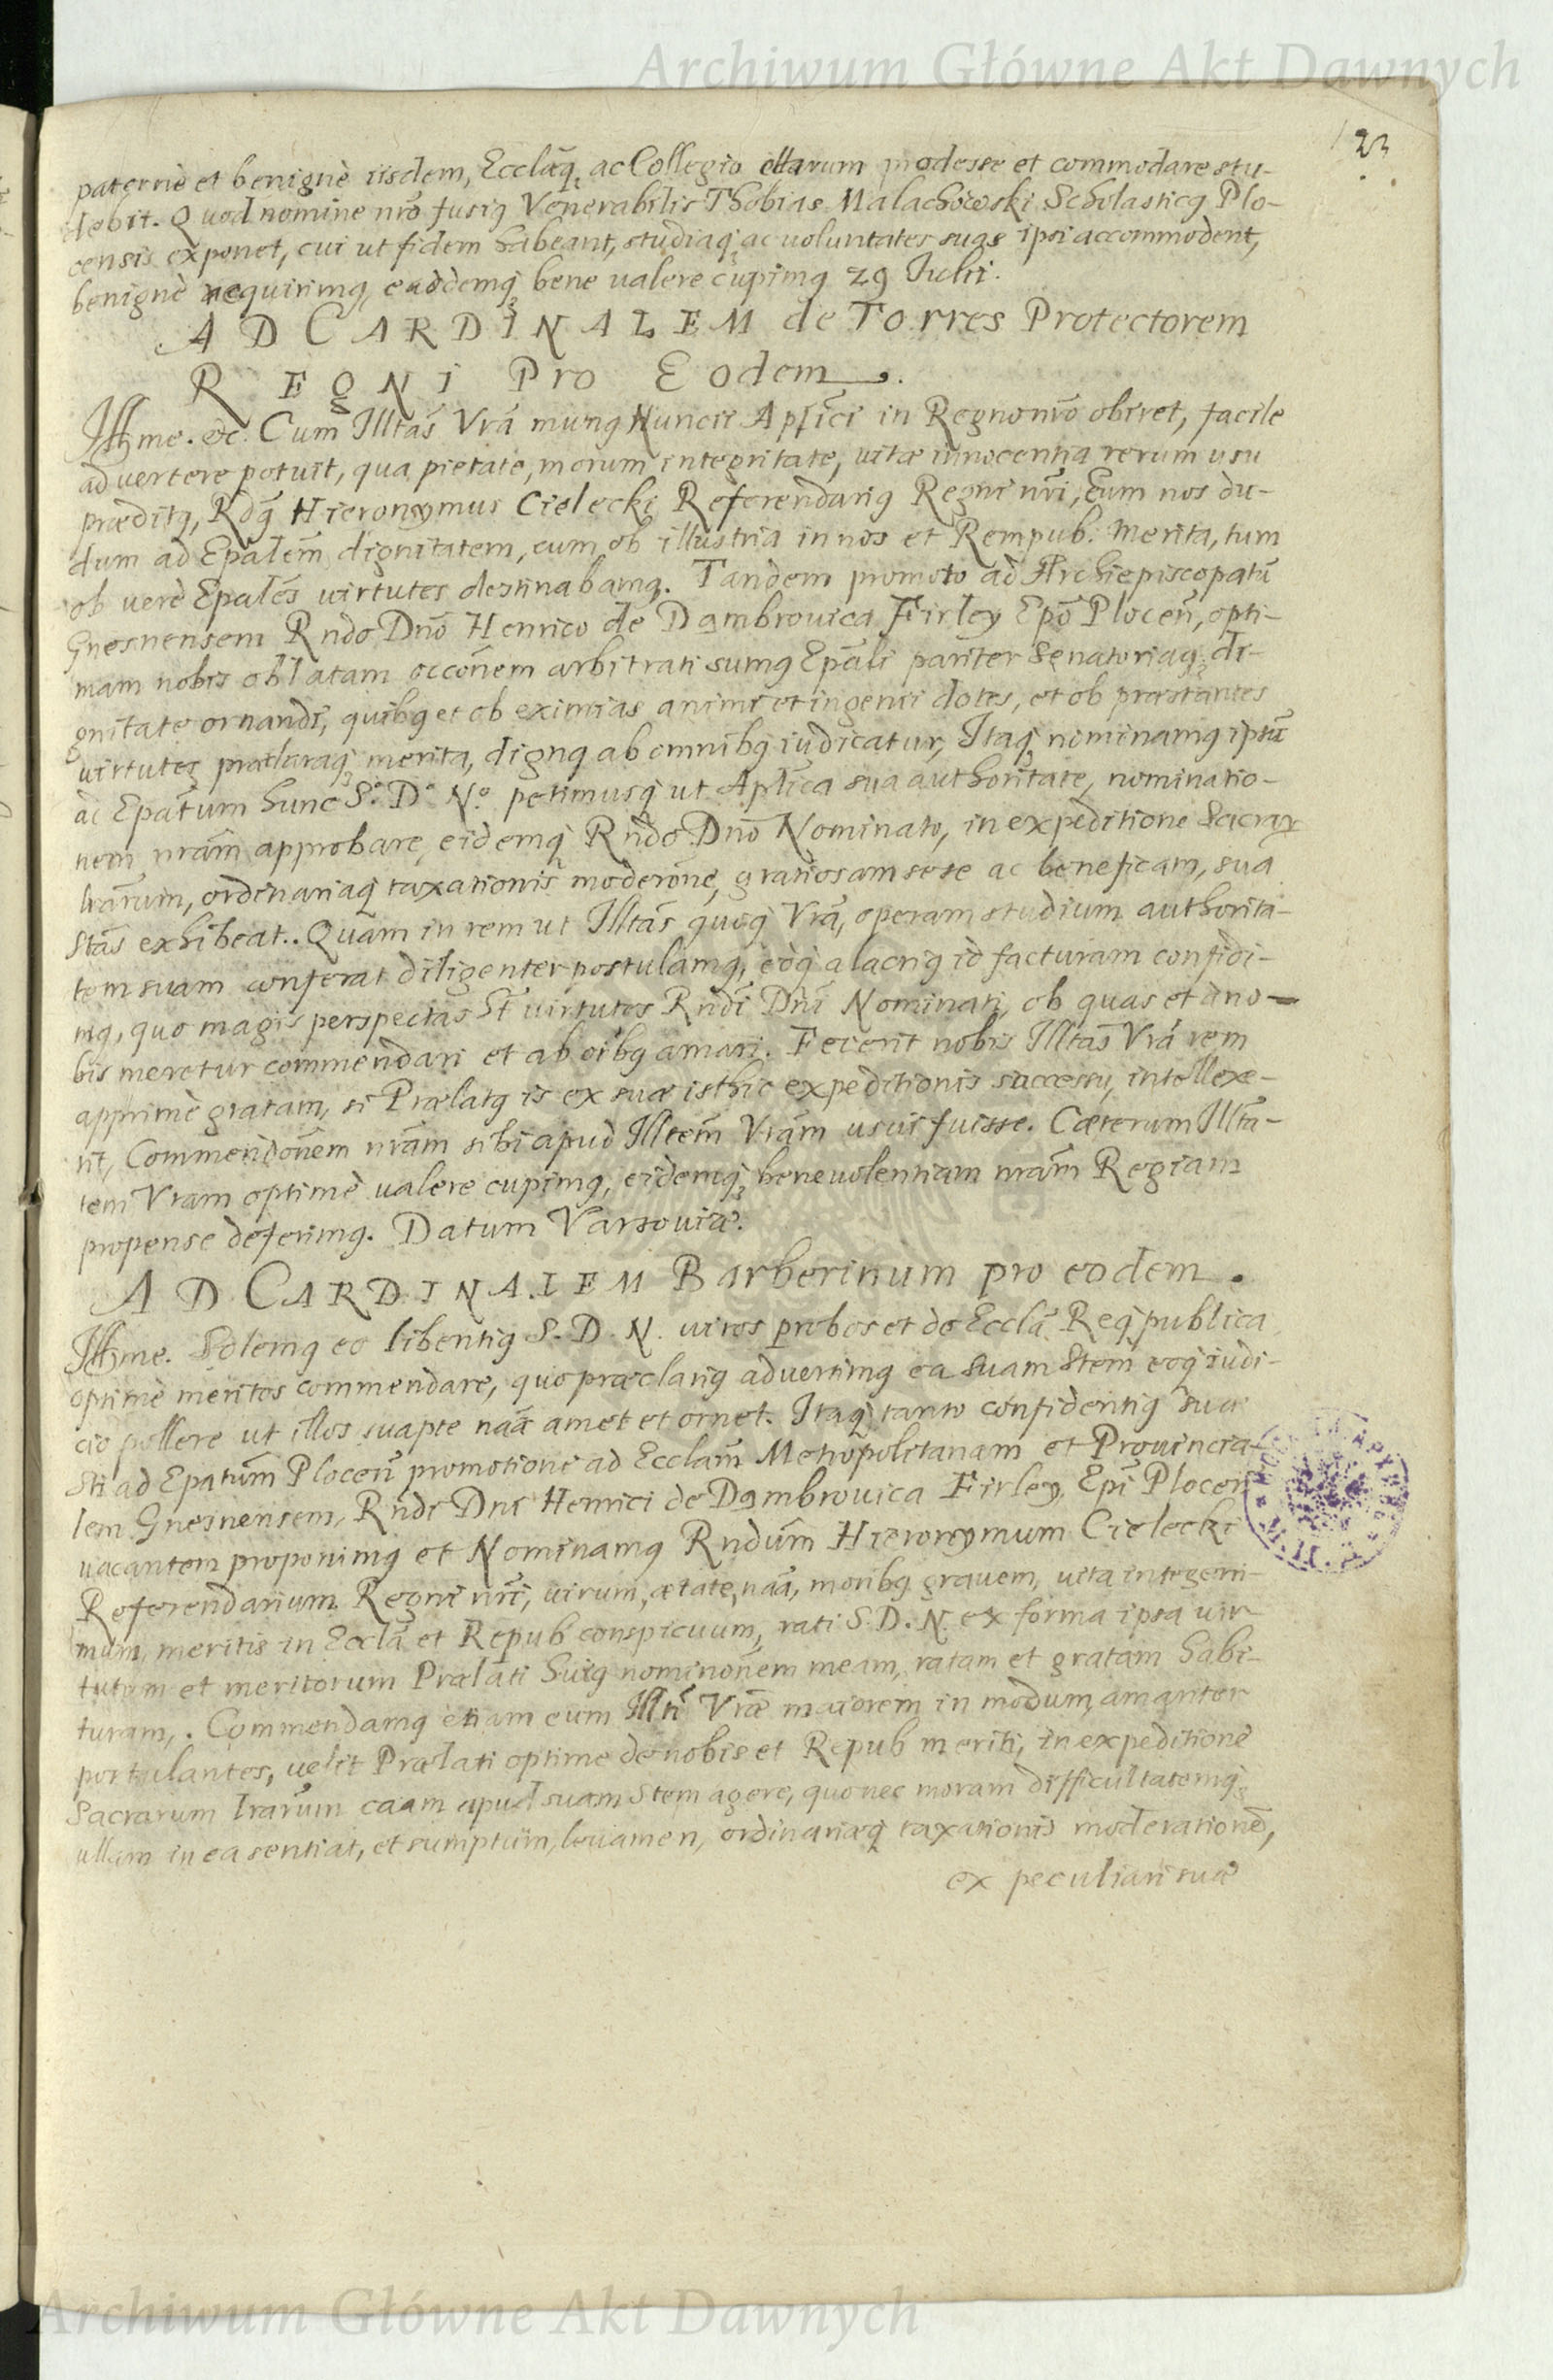 Archiwum Główne Akt Dawnych
123
paternè et benignè iisdem, Ecclæq; ac Collegio illarum prodesse et commodare stu-
debit. Quod nomine nro fusiq Venerabilis Thobias Malachowski Scholasticq Plo-
censis exponet, cui ut fidem habeant, studiaq; ac voluntates suas ipsi accommodent,
benignè requirimq, easdemq; bene valere cupimq 29 Iulii.
AD CARDINALEM de Torres Protectorem
REGNI Pro Eodem.
Illme. etc. Cum Illtas Vra munq Nuncii Aplici in Regno nro obiret, facile
advertere potuit, qua pietate, morum integritate, vitæ innocentia rerum usu
præditq, Rdq Hieronymus Cielecki Referendariq Regni nri, Eum nos du-
dum ad Epalem dignitatem, cum ob illustria in nos et Rempub. merita, tum
ob verè Epales virtutes destinabamq. Tandem promoto ad Archiepiscopatū
Gnesnensem Rndo Dno Henrico de Dąmbrovica Firley Epo Plocen, opti-
mam nobis oblatam occonem arbitrati sumq Epali pariter Senatoriaq; di-
gnitate ornandi, quibq et ob eximias animi et ingenii dotes, et ob præstantes
virtutes præclaraq; merita, dignq ab omnibq iudicatur, Itaq; nominamq ipsū
ad Epatum hunc S.o D.o N.o petimusq; ut Aplica sua authoritate, nominatio-
nem nram approbare, eidemq; Rndo Dno Nominato, in expeditione Sacrar
lrarum, ordinariaq; taxationis moderone, gratiosam sese ac beneficam, sua
Stas exhibeat.. Quam in rem ut Illtas quoq; Vra, operam studium authorita-
tem suam conferat diligenter postulamq, eoq; alacriq id facturam confidi-
mq, quo magis perspectas St virtutes Rndi Dni Nominati, ob quas et a no-
bis meretur commendari et ab oibq amari. Fecerit nobis Illtas Vra rem
apprimè gratam, si Prælatq is ex suæ isthic expeditionis successu, intellexe-
rit, Commendonem nram sibi apud Illtem Vram usui fuisse. Cæterum Illta-
tem Vram optimè valere cupimq, eidemq; benevolentiam nram Regiam
propense deferimq. Datum Varsoviæ.
AD CARDINALEM Barberinum pro eodem.
Illme. Solemq eo libentiq S. D. N. viros probos et de Eccla Req; publica
optimè meritos commendare, quo præclariq advertimq ea suam Stem eoq; iudi-
cio pollere ut illos suapte naa amet et ornet. Itaq; tanto confidentiq suæ
Sti ad Epatum Plocen promotione ad Ecclam Metropolitanam et Provincia-
lem Gnesnensem, Rndi Dni Henrici de Dąmbrovica Firley, Epi Plocen
vacantem proponimq et Nominamq Rndum Hieronymum Cielecki
Referendarium Regni nri, virum, ætate, naa, moribq gravem, vita integerri-
mum, meritis in Eccla et Repub conspicuum, rati S. D. N. ex forma ipsa vir-
tutum et meritorum Prælati huiq nominonem meam, ratam et gratam habi-
turam,. Commendamq etiam eum Illti Vræ maiorem in modum amanter
postulantes, velit Prælati optime de nobis et Repub meriti, in expeditione
Sacrarum lrarum caam apud suam Stem agere, quo nec moram difficultatemq;
ullam in ea sentiat, et sumptum, levamen, ordinariæq; taxationis moderationē,
ex peculiari suæ
Archiwum Główne Akt Dawnych